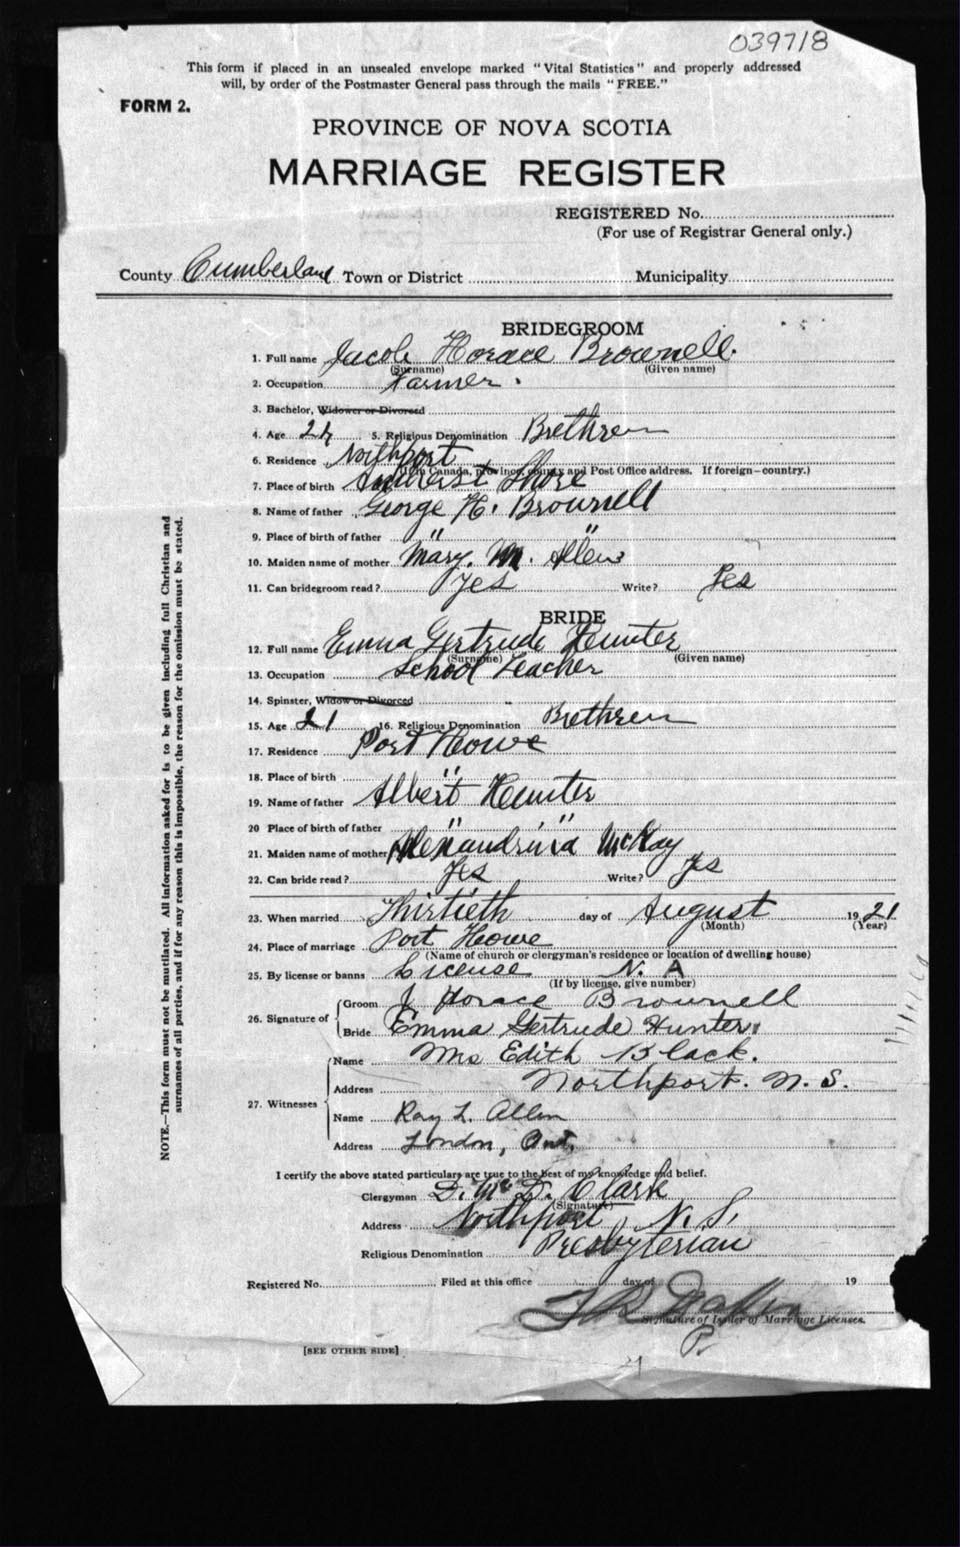 039718
This form if placed in an unsealed envelope marked "Vital Statistics" and properly addressed
will, by order of the Postmaster General pass through the mails "FREE."
FORM 2.
PROVINCE OF NOVA SCOTIA
MARRIAGE REGISTER
REGISTERED No.
(For use of Registrar General only.)
County Cumberland Town or District Municipality
BRIDEGROOM
1. Full name Jacob Horace Brownell.
(Surname) (Given name)
2. Occupation Farmer.
3. Bachelor, Widower or Divorced
4. Age 24 5. Religious Denomination Brethren
6. Residence Northport
(If in Canada, province, county and Post Office address. If foreign—country.)
7. Place of birth Amherst Shore
8. Name of father George H. Brownell
9. Place of birth of father " "
10. Maiden name of mother Mary. M. Allen
11. Can bridegroom read? Yes Write? Yes
BRIDE
12. Full name Emma Gertrude Hunter
(Surname) (Given name)
13. Occupation School Teacher
14. Spinster, Widow or Divorced
15. Age 21 16. Religious Denomination Brethren
17. Residence Port Howe
18. Place of birth "
19. Name of father Albert Hunter
20 Place of birth of father " "
21. Maiden name of mother Alexandrina McKay
22. Can bride read? Yes Write? Yes
23. When married Thirtieth day of August 1921
(Month) (Year)
24. Place of marriage Port Howe
(Name of church or clergyman's residence or location of dwelling house)
25. By license or banns License N. A
(If by license, give number)
26. Signature of Groom J Horace Brownell
Bride Emma Gertrude Hunter
27. Witnesses Name Mrs Edith Black.
Address Northport. N. S.
Name Ray L. Allen
Address London, Ont,
I certify the above stated particulars are true to the best of my knowledge and belief.
Clergyman D. McD. Clark
(Signature)
Address Northport N. S.
Religious Denomination Presbyterian
Registered No. Filed at this office day of 19
Signature of Issuer of Marriage Licenses.
P.
[SEE OTHER SIDE]
NOTE.—This form must not be mutilated. All information asked for is to be given including full Christian and
surnames of all parties, and if for any reason this is impossible, the reason for the omission must be stated.